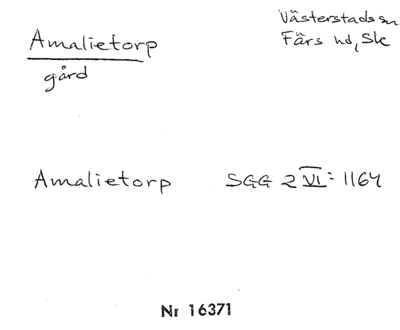 Amalietorp
gård
Västerstads sn
Färs hd, Sk
Amalietorp SGG 2 VI: 1164
Nr 16371